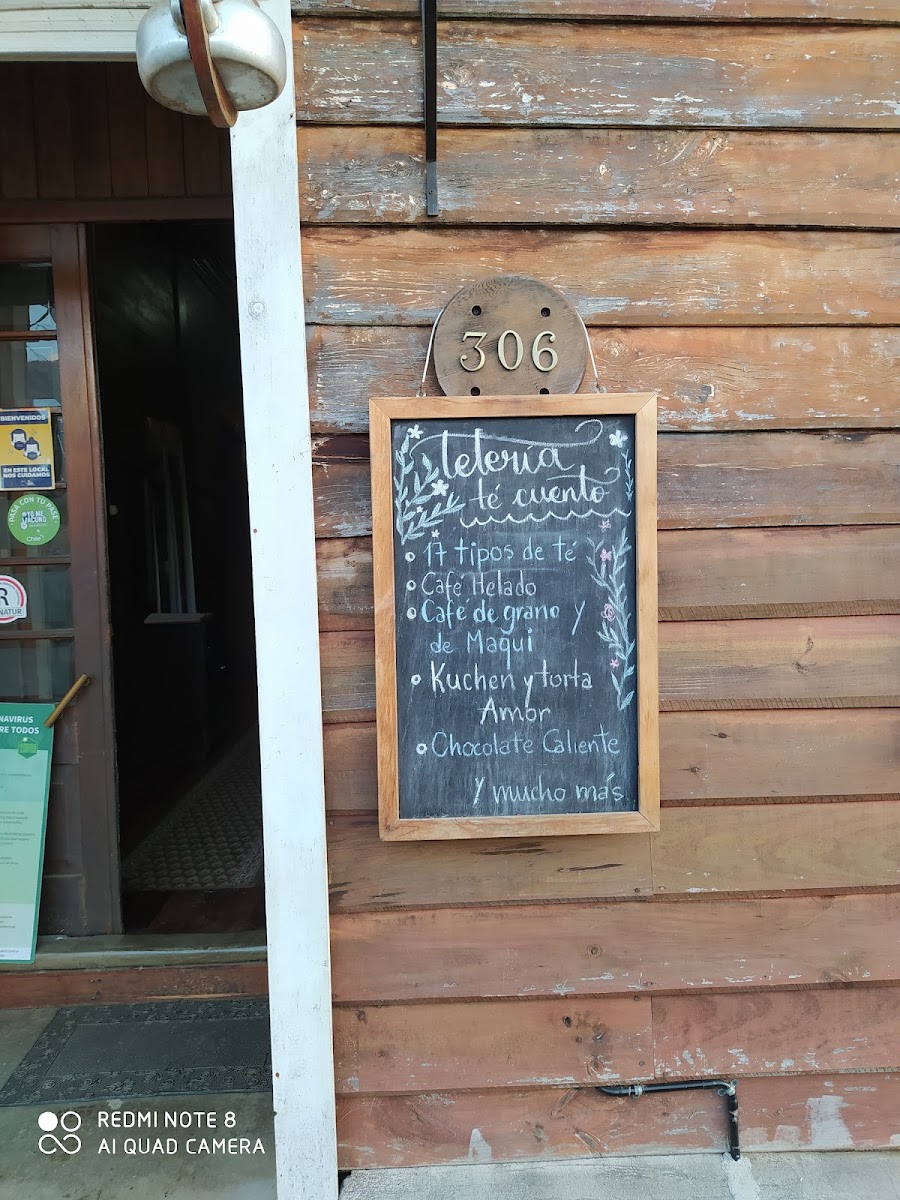 306
tetería
té cuento
17 tipos de té
Café Helado
Café de grano y
de Maqui
Kuchen y torta
Amor
Chocolate Caliente
y mucho más
BIENVENIDOS
EN ESTE LOCAL
NOS CUIDAMOS
PASA CON TU PASE
YO ME
VACUNO
Chile
R
NATUR
NAVIRUS
RE TODOS
REDMI NOTE 8
AI QUAD CAMERA